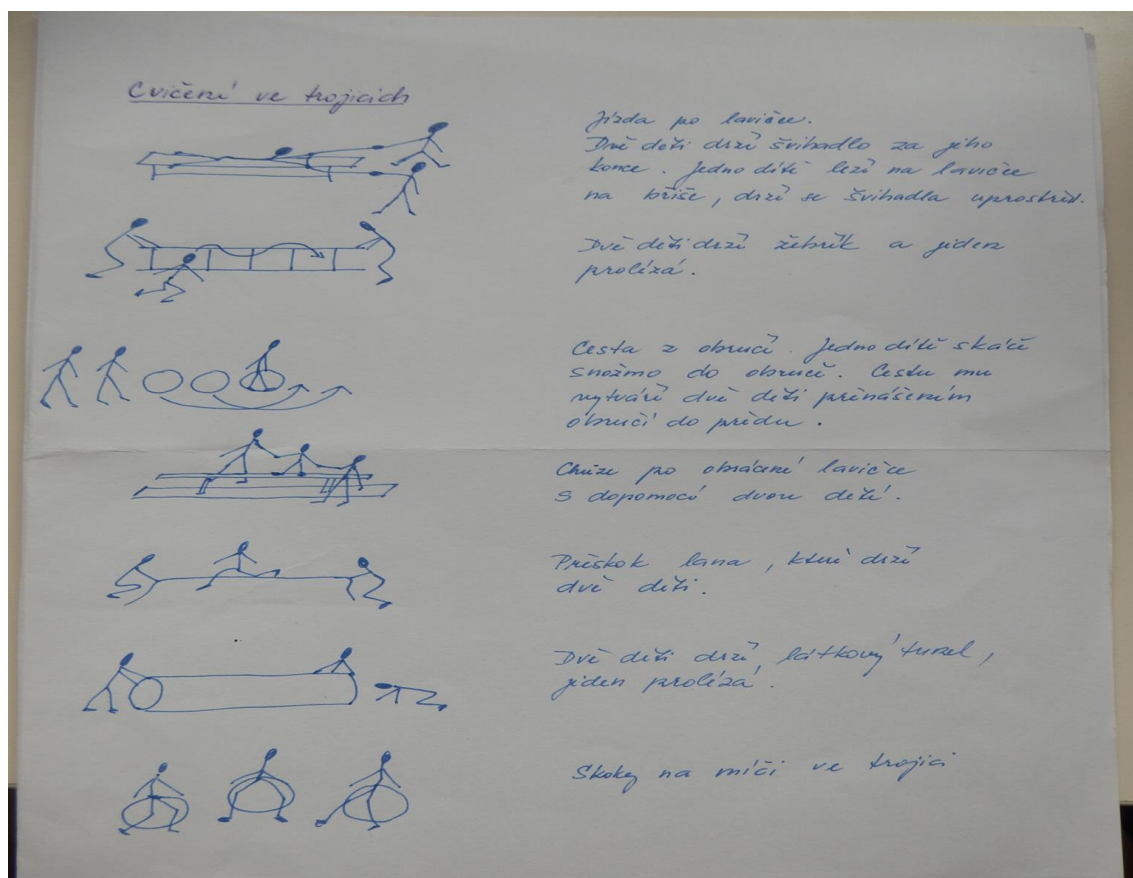 Cvičení ve trojicích
Jízda po lavičce.
Dvě děti drží švihadlo za jeho
konce. Jedno dítě leží na lavičce
na břiše, drží se švihadla uprostřed.
Dvě děti drží žebřík a jeden
prolézá.
Cesta z obručí. Jedno dítě skáče
snožmo do obručí. Cestu mu
vytváří dvě děti přenášením
obručí do předu.
Chůze po obrácené lavičce
s dopomocí dvou dětí.
Přeskok lana, které drží
dvě děti.
Dvě děti drží látkový tunel,
jeden prolézá.
Skoky na míči ve trojici